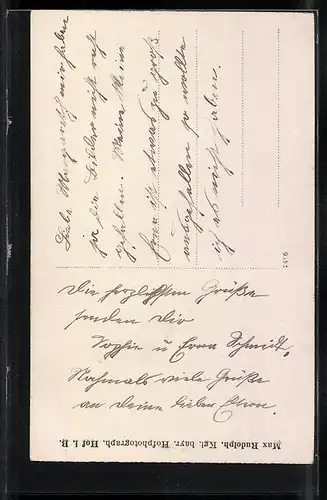 Liebe Margareth mir haben
ja die Bilder nicht recht
gefallen. Meine kleine
Erna ist etwas zu groß
ausgefallen so wollte
ich es nicht haben.
Die herzlichsten Grüße
senden Dir
Sophie u Erna Schmidt.
Nochmals viele Grüße
an Deine lieben Eltern.
Max Rudolph, Kgl. bayr. Hofphotograph, Hof i. B.